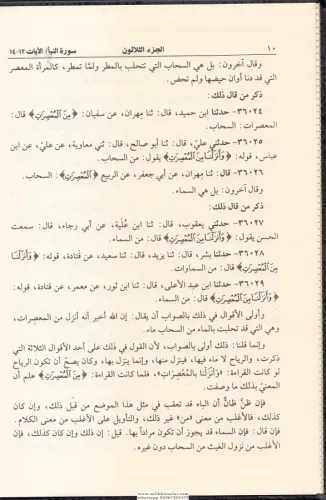 ١٠ الجزء الثلاثون سورة النبأ/ الآيات ١٢-١٤
وقال آخرون: بل هي السحاب التي تتحلب بالمطر ولمَّا تمطر، كالمرأة المعصر
التي قد دنا أوان حيضها ولم تحض.
ذكر من قال ذلك:
٣٦٠٢٤- حدثنا ابن حميد، قال: ثنا مِهران، عن سفيان: ﴿مِنَ ٱلْمُعْصِرَٰتِ﴾ قال:
المعصرات: السحاب.
٣٦٠٢٥- حدثني عليّ، قال: ثنا أبو صالح، قال: ثني معاوية، عن عليّ، عن ابن
عباس، قوله: ﴿وَأَنزَلْنَا مِنَ ٱلْمُعْصِرَٰتِ﴾ يقول: من السحاب.
٣٦٠٢٦- قال: ثنا مهران، عن أبي جعفر، عن الربيع ﴿ٱلْمُعْصِرَٰتِ﴾: السحاب.
وقال آخرون: بل هي السماء.
ذكر من قال ذلك:
٣٦٠٢٧- حدثني يعقوب، قال: ثنا ابن عُلَية، عن أبي رجاء، قال: سمعت
الحسن يقول: ﴿وَأَنزَلْنَا مِنَ ٱلْمُعْصِرَٰتِ﴾ قال: من السماء.
٣٦٠٢٨- حدثنا بشر، قال: ثنا يزيد، قال: ثنا سعيد، عن قتادة، قوله: ﴿وَأَنزَلْنَا
مِنَ ٱلْمُعْصِرَٰتِ﴾ قال: من السماوات.
٣٦٠٢٩- حدثنا ابن عبد الأعلى، قال: ثنا ابن ثور، عن معمر، عن قتادة، قوله:
﴿وَأَنزَلْنَا مِنَ ٱلْمُعْصِرَٰتِ﴾ قال: من السماء.
وأولى الأقوال في ذلك بالصواب أن يقال: إن الله أخبر أنه أنزل من المعصِرات،
وهي التي قد تحلبت بالماء من السحاب ماء.
وإنما قلنا: ذلك أولى بالصواب، لأن القول في ذلك على أحد الأقوال الثلاثة التي
ذكرت، والرياح لا ماء فيها، فينزل منها، وإنما ينزل بها، وكان يصحّ أن تكون الرياح
لو كانت القراءة: «وَأنْزَلْنا بالمُعْصِرَاتِ»، فلما كانت القراءة: ﴿مِنَ ٱلْمُعْصِرَٰتِ﴾ علم أن
المعنيّ بذلك ما وصفت.
فإن ظنّ ظانّ أن الباء قد تعقب في مثل هذا الموضع من قيل ذلك، وإن كان
كذلك، فالأغلب من معنى «من» غير ذلك، والتأويل على الأغلب من معنى الكلام.
فإن قال: فإن السماء قد يجوز أن تكون مراداً بها. قيل: إن ذلك وإن كان كذلك، فإن
الأغلب من نزول الغيث من السحاب دون غيره.